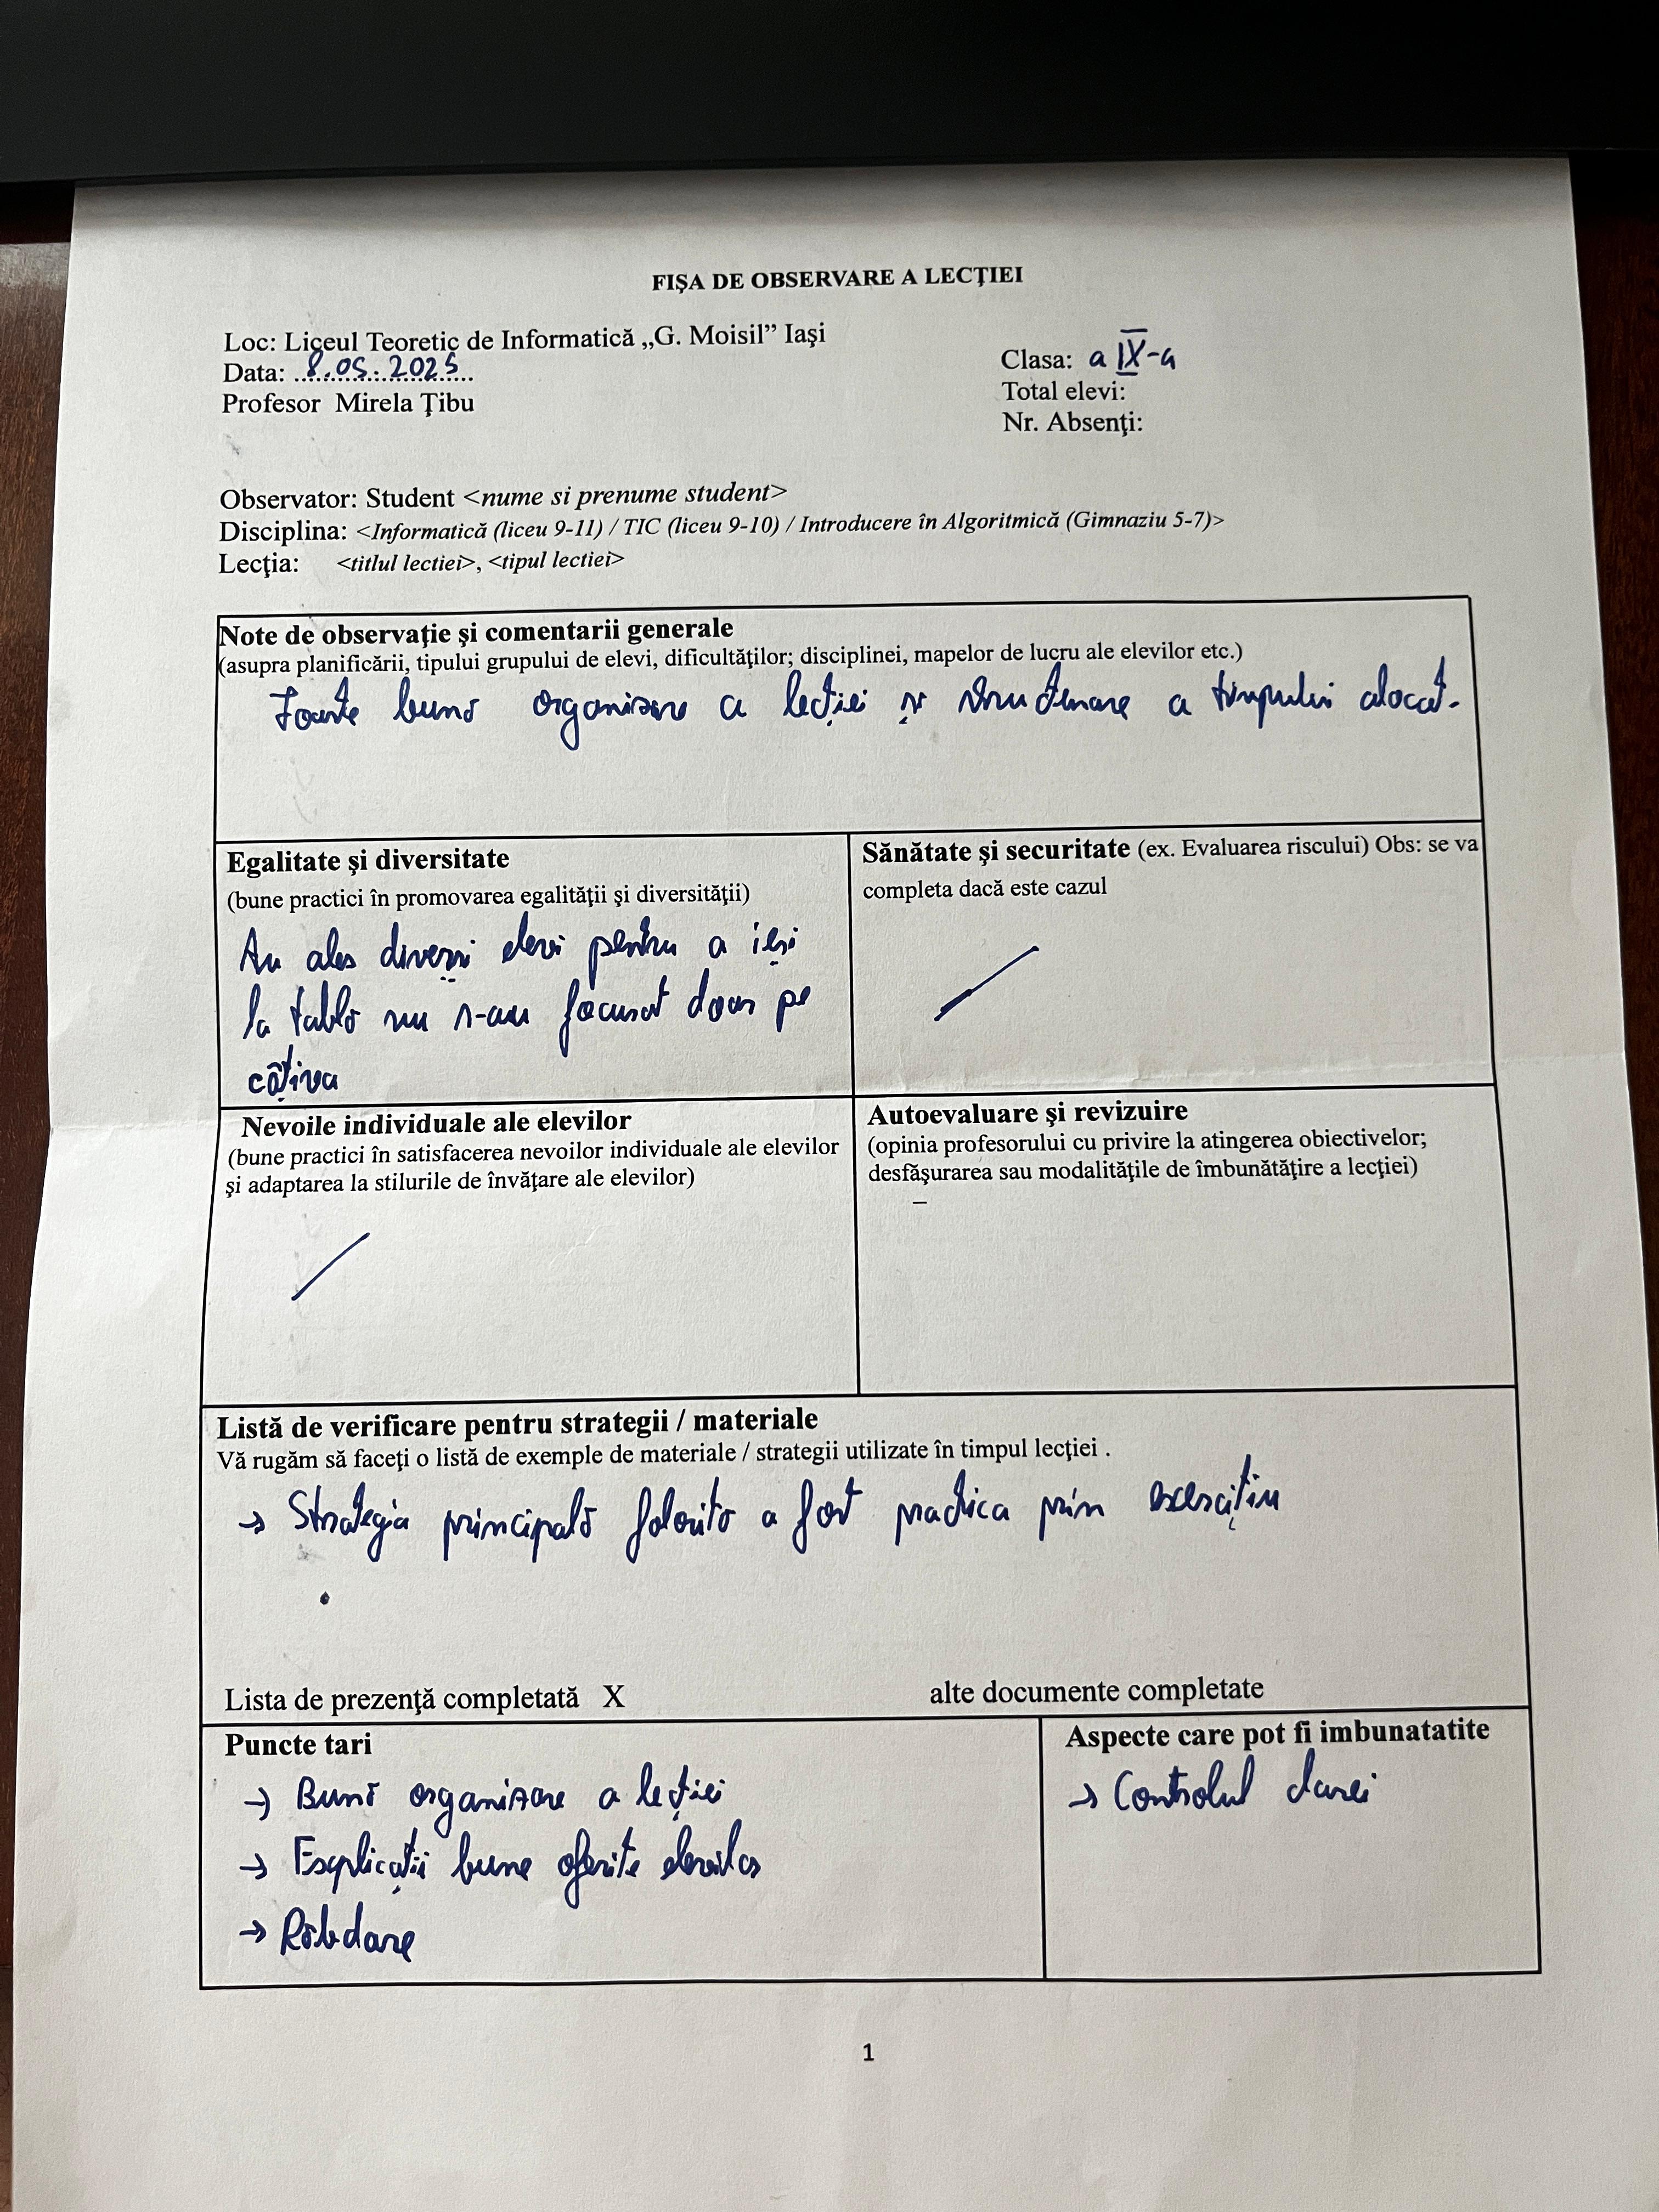 FIŞA DE OBSERVARE A LECŢIEI
Loc: Liceul Teoretic de Informatică „G. Moisil” Iaşi
Data: 8.05.2025
Profesor Mirela Ţibu
Clasa: a IX-a
Total elevi:
Nr. Absenţi:
Observator: Student <nume si prenume student>
Disciplina: <Informatică (liceu 9-11) / TIC (liceu 9-10) / Introducere în Algoritmică (Gimnaziu 5-7)>
Lecţia: <titlul lectiei>, <tipul lectiei>
Note de observaţie şi comentarii generale
(asupra planificării, tipului grupului de elevi, dificultăţilor; disciplinei, mapelor de lucru ale elevilor etc.)
Foarte bună organizare a lecției și a timpului alocat.
Egalitate şi diversitate
(bune practici în promovarea egalităţii şi diversităţii)
Au ales diverși elevi pentru a ieși
la tablă nu s-au focusat doar pe
câțiva
Sănătate şi securitate (ex. Evaluarea riscului) Obs: se va
completa dacă este cazul
Nevoile individuale ale elevilor
(bune practici în satisfacerea nevoilor individuale ale elevilor
şi adaptarea la stilurile de învăţare ale elevilor)
Autoevaluare şi revizuire
(opinia profesorului cu privire la atingerea obiectivelor;
desfăşurarea sau modalităţile de îmbunătăţire a lecţiei)
–
Listă de verificare pentru strategii / materiale
Vă rugăm să faceţi o listă de exemple de materiale / strategii utilizate în timpul lecţiei .
→ Strategia principală folosită a fost practica prin exercițiu
Lista de prezenţă completată X
alte documente completate
Puncte tari
→ Bună organizare a lecției
→ Explicații bune oferite elevilor
→ Răbdare
Aspecte care pot fi imbunatatite
→ Controlul clasei
1